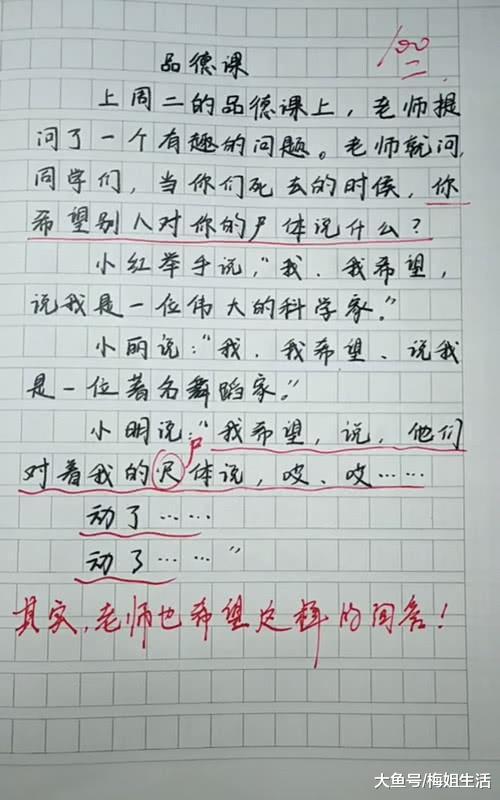 100
品德课
上周二的品德课上，老师提
问了一个有趣的问题。老师就问，
同学们，当你们死去的时候，你
希望别人对你的尸体说什么？
小红举手说，"我、我希望，
说我是一位伟大的科学家。"
小丽说："我、我希望、说我
是一位著名舞蹈家。"
小明说："我希望，说，他们
尸
对着我的尺体说，哎、哎……
动了……
动了……"
其实，老师也希望这样的回答！
大鱼号/梅姐生活